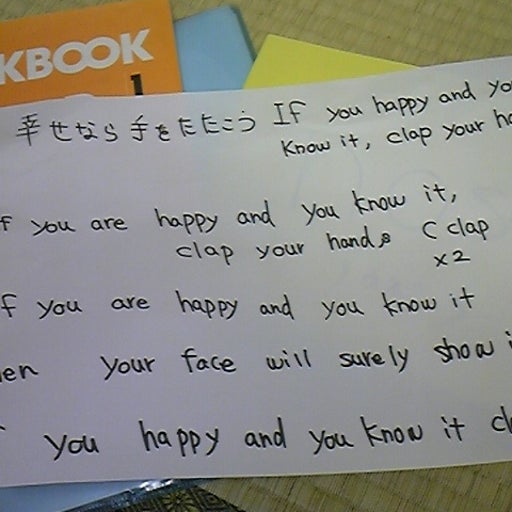 KBOOK
1
幸せなら手をたたこう If you happy and yo
Know it, clap your ha
f you are happy and you know it,
clap your hands C clap
x2
f you are happy and you know it
en your face will surely show i
you happy and you know it cl